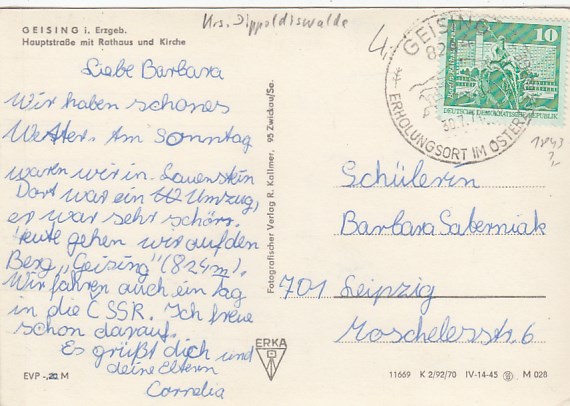 GEISING i. Erzgeb.
Hauptstraße mit Rathaus und Kirche
Krs. Dippoldiswalde
Liebe Barbara
Wir haben schönes
Wetter. Am Sonntag
waren wir in Lauenstein
Dort war ein Umzug,
er war sehr schön.
Heute gehen wir auf den
Berg „Geising“ (824m).
Wir fahren auch ein Tag
in die CSSR. Ich freue
schon darauf.
Es grüßt dich und
deine Eltern
Cornelia
EVP -,20 M
Fotografischer Verlag R. Kallmer, 95 Zwickau/Sa.
ERKA
GEISING
ERHOLUNGSORT IM OSTERZ
10
DEUTSCHE DEMOKRATISCHE REPUBLIK
1843
Schülerin
Barbara Saberniak
701 Leipzig
Moschelesstr. 6
11669 K 2/92/70 IV-14-45 M 028